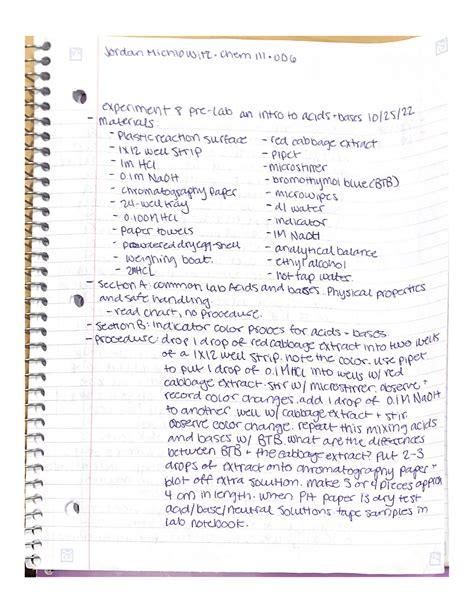 Jordan Michlowitz • Chem 111 • 006
experiment 8 pre-lab an intro to acids + bases 10/25/22
- Materials:
- Plastic reaction surface - red cabbage extract
- 1X12 well strip - pipet
- 1M HCl - microstirrer
- 0.1M NaOH - bromothymol blue (BTB)
- chromatography paper - microwipes
- 24-well tray - di water
- 0.100M HCl - indicator
- Paper towels - 1M NaOH
- powdered dry egg-shell - analytical balance
- weighing boat - ethyl alcohol
- 2M HCl - hot tap water
- Section A: common lab Acids and bases. Physical properties
and safe handling.
- read chart, no procedure.
- Section B: Indicator color probes for acids + bases
- Procedure: drop 1 drop of red cabbage extract into two wells
of a 1X12 well strip. note the color. use pipet
to put 1 drop of 0.1M HCl into wells w/ red
cabbage extract. stir w/ microstirrer. observe +
record color changes. add 1 drop of 0.1M NaOH
to another well w/ cabbage extract + stir.
observe color change. repeat this mixing acids
and bases w/ BTB. what are the differences
between BTB + the cabbage extract? put 2-3
drops of extract onto chromatography paper +
blot off extra solution. make 3 or 4 pieces approx
4 cm in length. when PH paper is dry test
acid/base/neutral solutions. tape samples in
lab notebook.